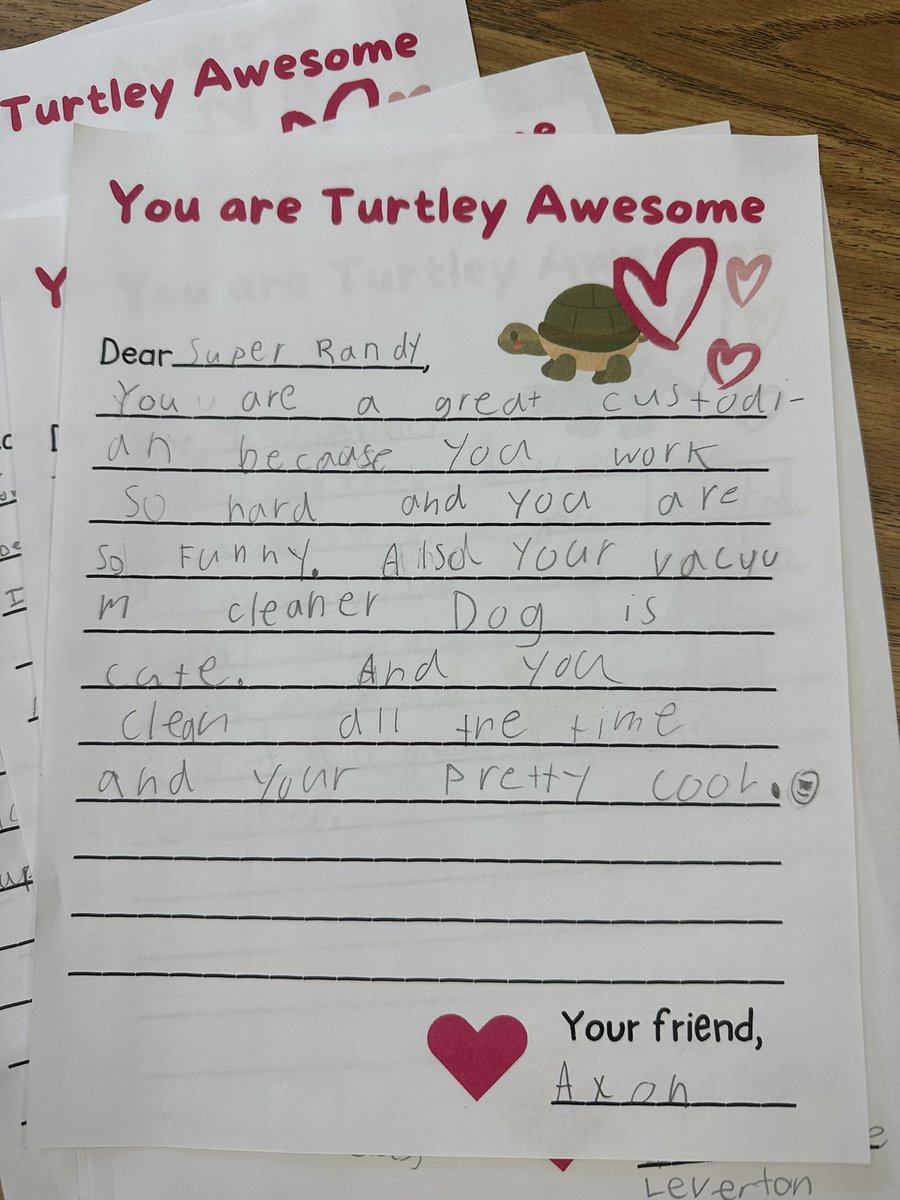 Turtley Awesome
You are Turtley Awesome
Dear Super Randy,
You are a great custodi-
an because you work
so hard and you are
so Funny. Alsol your vacyu
m cleaner Dog is
cute. And you
clean all the time
and your pretty cool.
Your friend,
Axon
Leverton